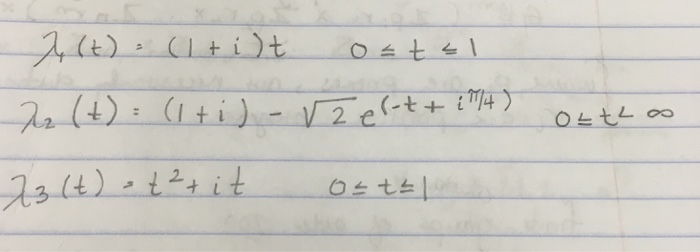 λ₁(t) = (1 + i)t 0 ≤ t ≤ 1
λ₂(t) = (1 + i) - √2 e^(-t + iπ/4) 0 ≤ t < ∞
λ₃(t) = t² + it 0 ≤ t ≤ 1